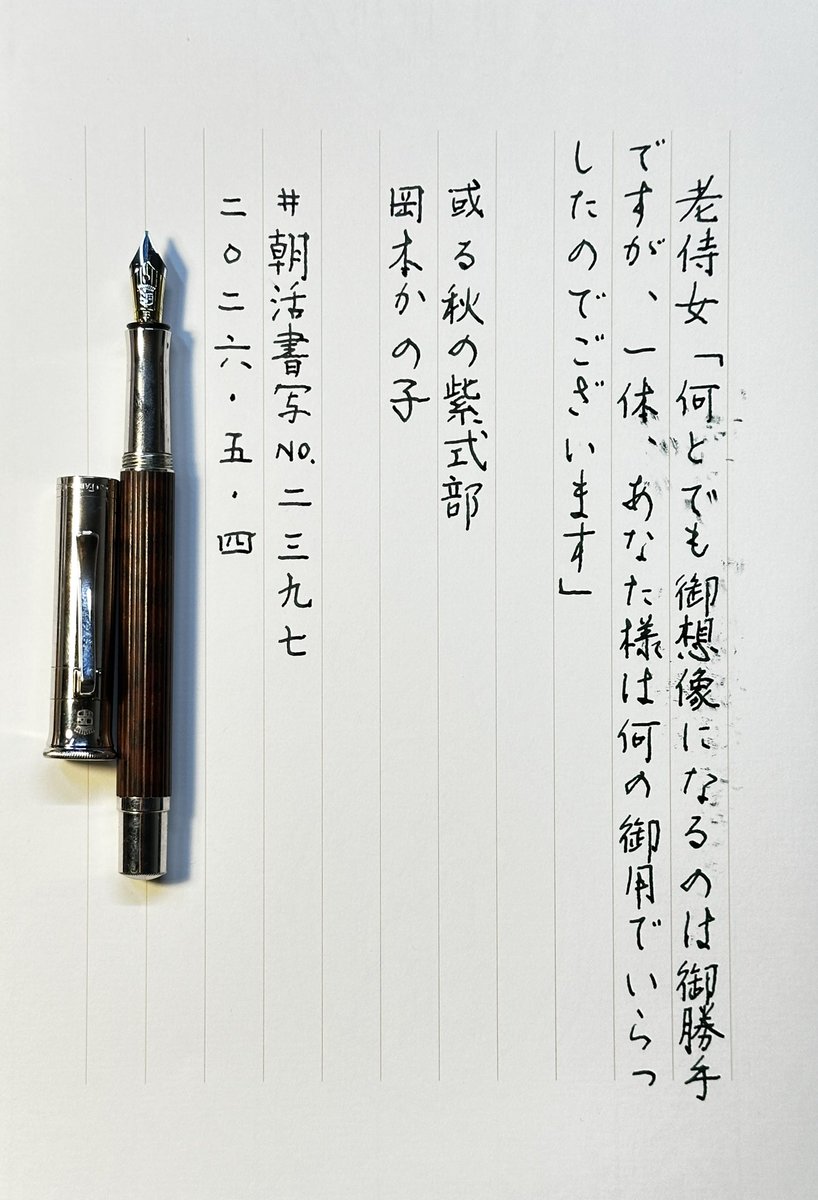 老侍女「何とでも御想像になるのは御勝手
ですが、一体、あなた様は何の御用でいらっ
したのでございます」
或る秋の紫式部
岡本かの子
#朝活書写NO.二三九七
二〇二六・五・四